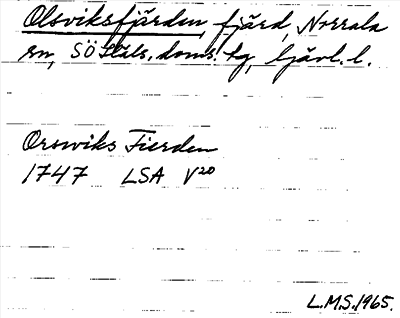 Olsviksfjärden, fjärd, Norrala
sn, SÖ Häls. doms. tg, Gävl. l.
Orswiks Fierden
1747 LSA V20
L.M.S. 1965.